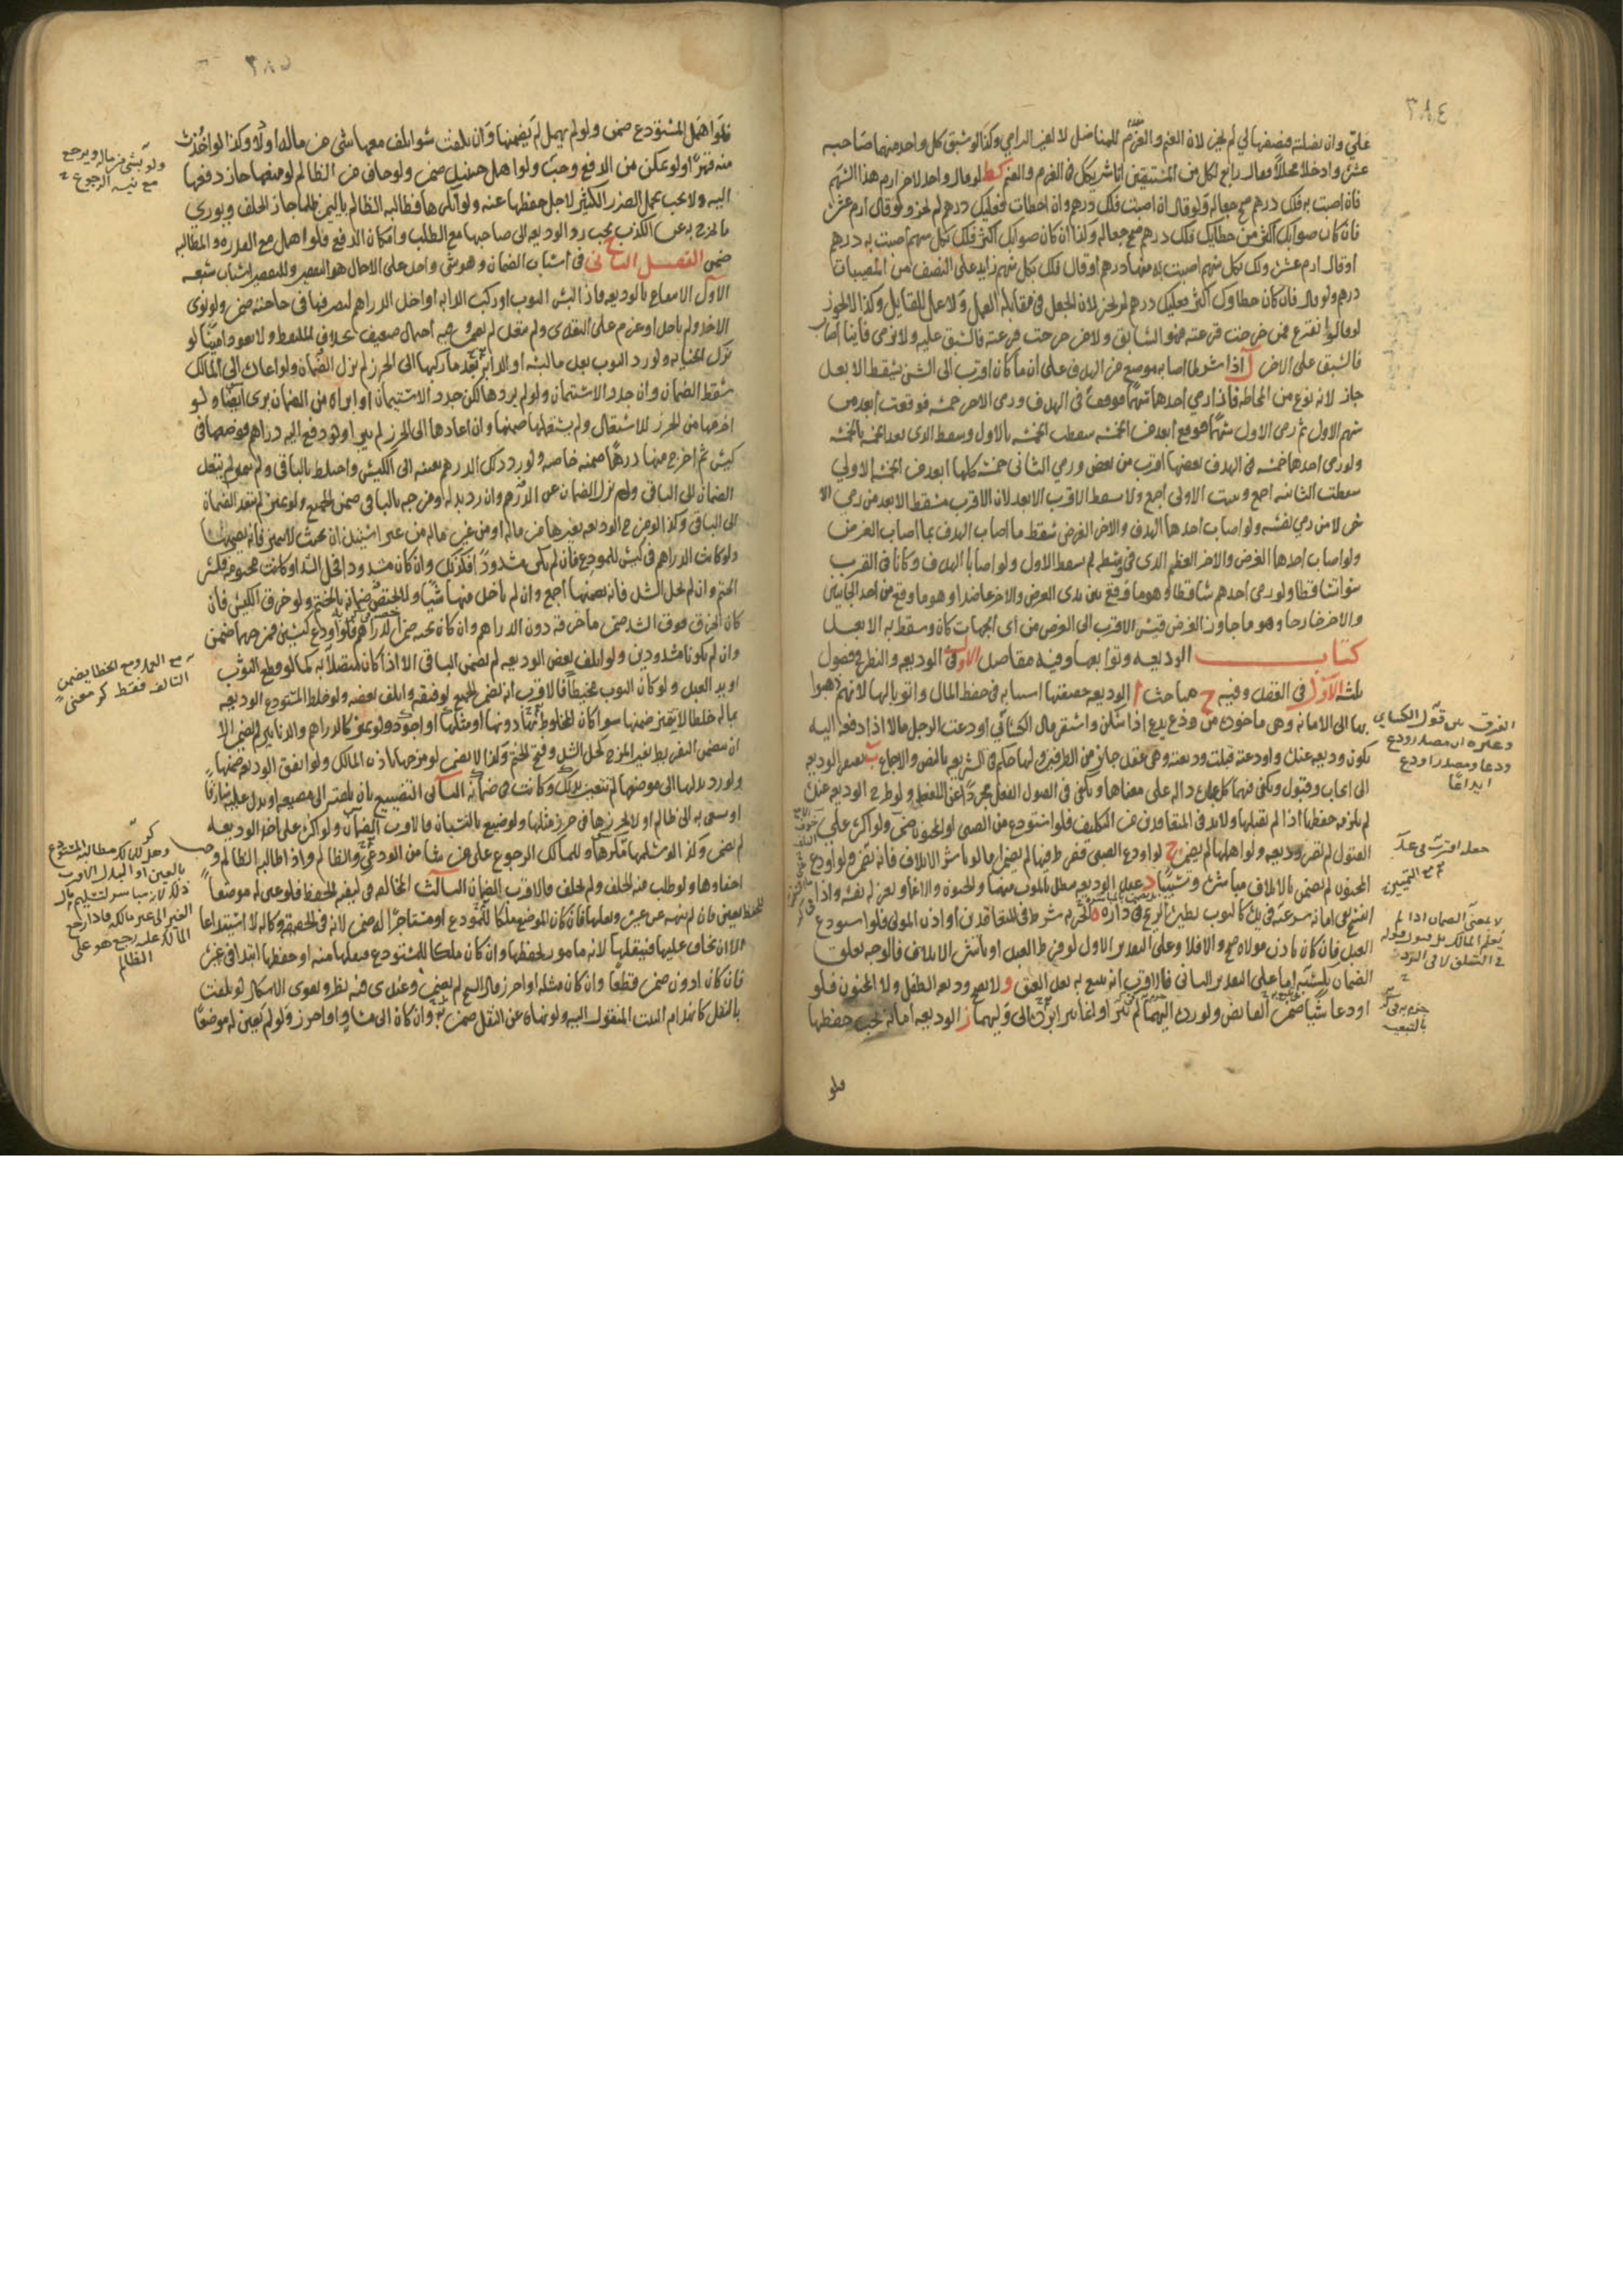 ٣٨٤
عليّ وان نضلته فنصفها لي لم يجز لان الغنم والغرم للمناضل لا لغير الرامي وكذا لو سبق كل واحد منهما صاحبه
عشرة وادخلا محللا فقال رابع لكل من المستبقين انا شريكك في الغرم والغنم كط لو قال واحد لاخر ارم هذا السهم
فان اصبت به فلك درهم صح جعالة ولو قال ان اصبت فلك درهم وان اخطات فعليك درهم لم يجز ولو قال ارم عشرة
فان كان صوابك اكثر من خطايك فلك درهم صح جعالة وكذا ان كان صوابك اكثر فلك بكل سهم اصبت به درهم
او قال ارم عشرة ولك بكل سهم اصبت به منها درهم او قال فلك بكل سهم زايد على النصف من المصيبات
درهم ولو قال فان كان خطاوك اكثر فعليك درهم لم يجز لان الجعل في مقابلة العمل ولا عمل للقايل وكذا لا يجوز
لو قالوا نقترع فمن خرجت قرعته فهو السابق ولا من خرجت قرعته فالسبق عليه ولا نرمي فاينا اصاب
فالسبق على الاخر ل اذا شرطا اصابة موضع من الهدف على ان ما كان اقرب الى الشن يسقط الابعد
جاز لانه نوع من المحاطة فاذا رمى احدهما سهما فوقع في الهدف ورمى الاخر خمسة فوقعت ابعد من
سهم الاول ثم رمى الاول سهما فوقع ابعد من الخمسة سقطت الخمسة بالاول وسقط الذي بعد الخمسة بالخمسة
ولو رمى احدهما خمسة في الهدف بعضها اقرب من بعض ورمى الثاني خمسة كلها ابعد من الخمسة الاولى
سقطت الثانية اجمع وثبتت الاولى اجمع ولا يسقط الاقرب الابعد لان الاقرب يسقط الابعد من رمي الا
خر لا من رمي نفسه ولو اصاب احدهما الهدف والاخر الغرض سقط ما اصاب الهدف بما اصاب الغرض
ولو اصاب احدهما الغرض والاخر العظم الذي في وسطه لم يسقط الاول ولو اصابا الهدف وكانا في القرب
سواء تساقطا ولو رمى احدهم ساقطا وهو ما وقع بين يدي الغرض والاخر عاضدا وهو ما وقع من احد الجانبين
والاخر خارجا وهو ما جاوز الغرض قيس الاقرب الى الغرض من اي الجهات كان وسقط به الابعد
كتاب الوديعة وتوابعها وفيه مقاصد الاول في الوديعة والنظر في فصول
ثلثة الاول في العقد وفيه ح مباحث ا الوديعة حقيقتها استنابة في حفظ المال واتوا بالهاء لانهم ذهبوا
بها الى الامانة وهي ماخوذة من ودع يدع اذا سكن واستقر قال الكسائي اودعت الرجل مالا اذا دفعه اليه
يكون وديعة عندك واودعته قبلت وديعته وهي عقد جايز من الطرفين ولها حكم في الشريعة بالنص والاجماع ب تفتقر الوديعة
الى ايجاب وقبول ويكفي فيهما كل عبارة دالة على معناها ويكفي في القبول الفعل مجردا عن اللفظ ولو طرح الوديعة عنده
لم يلزمه حفظها اذا لم يقبلها ولا بد في المتعاقدين من التكليف فلو استودع من الصبي او المجنون ضمن ولو اكره على
القبول لم تصر وديعة ولو اهملها لم يضمن ج لو اودع الصبي ففرط فيها لم يضمن اما لو باشر الاتلاف فانه يضمن ولو اودع
المجنون لم يضمن بالاتلاف مباشرة وتسبيبا د عقد الوديعة يبطل بالموت منهما والجنون والاغماء وبعزل نفسه واذا
انفسخ بقي امانة شرعية في يده كالثوب تطيره الريح في داره ه الحرية شرط في المتعاقدين او اذن المولى فلو استودع
العبد فان كان باذن مولاه صح والا فلا وعلى التقدير الاول لو فرط العبد او باشر الاتلاف فالوجه تعلق
الضمان بكسبه اما على التقدير الثاني فالاقرب انه يتبع به بعد العتق و لا يصح وديعة الطفل ولا المجنون فلو
اودعا شيئا ضمن القابض ولو رده اليهما لم يبرا ولو بالرد الى وليهما ز الوديعة امانة يجب حفظها
فلو
الفرق بين قول الكسايي
وغيره ان مصدر ودع
ودعا ومصدر اودع
ايداعا
٣٨٥
فلو اهمل المستودع ضمن ولو لم يهمل لم يضمنها وان تلفت سواء تلف معها شيء من ماله او لا وكذا لو اخذت
منه قهرا ولو تمكن من الدفع وجب ولو اهمل حينئذ ضمن ولو خاف من الظالم لو منعها جاز دفعها
اليه ولا يجب تحمل الضرر الكثير لاجل حفظها عنه ولو انكرها فطالبه الظالم باليمين ظلما جاز الحلف ويوري
ما يخرج به عن الكذب ح يجب رد الوديعة الى صاحبها مع الطلب وامكان الدفع فلو اهمل مع القدرة والمطالبة
ضمن الفصل الثاني في اسباب الضمان وهو شيء واحد على الاجمال هو التقصير وللتقصير اسباب سبعة
الاول الانتفاع بالوديعة فاذا لبس الثوب او ركب الدابة او اخذ الدراهم ليصرفها في حاجته ضمن ولو نوى
الاخذ ولم ياخذ او عزم على التعدي ولم يفعل لم يضمن وفيه احتمال ضعيف بخلاف الملتقط ولا يعود امينا لو
ترك الخيانة ولو رد الثوب بعد ما لبسه او الدابة بعد ما ركبها الى الحرز لم يزل الضمان ولو اعاد الى المالك
سقط الضمان وان جدد الاستئمان ولو لم يردها لكن جدد الاستيمان او ابراه من الضمان برئ ايضا ولو
اخرجها من الحرز للاستعمال ولم يستعملها ضمنها وان اعادها الى الحرز لم يبرا ولو دفع اليه دراهم فوضعها في
كيس ثم اخرج منها درهما ضمنه خاصة ولو رد ذلك الدرهم بعينه الى الكيس واختلط بالباقي ولم يتميز لم ينتقل
الضمان الى الباقي ولم يزل الضمان عن الدرهم وان رد بدله ومزجه بالباقي ضمن الجميع ولو تميز لم يتعد الضمان
الى الباقي وكذا لو مزج الوديعة بغيرها من ماله او من غير ماله من غير استيذان بحيث لا يتميز فانه يضمنها
ولو كانت الدراهم في كيس للمودع فان لم يكن مشدودا فكذلك وان كان مشدودا فحل الشد او كانت مختومة فكسر
الختم وان لم يحل الشد فانه يضمنها اجمع وان لم ياخذ منها شيئا ولا يختص ضمانه بالختم ولو خرق الكيس فان
كان الخرق فوق الشد ضمن ما خرقه دون الدراهم وان كان تحته ضمن الدراهم فلو اودع كيسين فمزجهما ضمن
وان لم يكونا مشدودين ولو اتلف بعض الوديعة لم يضمن الباقي الا اذا كان متصلا به كما لو قطع الثوب
او يد العبد ولو كان الثوب مخيطا فالاقرب انه يضمن الجميع لو فتقه واتلف بعضه ولو خلط المستودع الوديعة
بماله خلطا لا يتميز ضمنها سواء كان المخلوط بها دونها او مثلها او اجود ولو تميز كالدراهم والدنانير لم يضمن الا
ان يتضمن التفريط بغير المزج كحل الشد وفتح الختم وكذا لا يضمن لو مزجها باذن المالك ولو انفق الوديعة ضمنها
ولو رد بدلها الى موضعها لم تتعين بذلك وكانت في ضمانه الثاني التضييع بان يلقيه الى مضيعة او يدل عليه سارقا
او يسعى به الى ظالم او لا يحرزها في حرز مثلها ولو ضيع بالنسيان فالاقرب الضمان ولو اكره على اخذ الوديعة
لم يضمن وكذا لو سلمها مكرها وللمالك الرجوع على من شاء من الودعي والظالم واذا طالبه الظالم وجب
اخفاؤها ولو طلب منه الحلف ولم يحلف فالاقرب الضمان الثالث المخالفة في كيفية الحفظ فلو عين له موضعا
للحفظ تعين فان لم ينهه عن غيره ونقلها فان كان الموضع ملكا للمودع او مستاجرا له ضمن لانه في الحقيقة وكالة لا استيداعا
الا ان يخاف عليها فينقلها لانه مامور بحفظها وان كان ملكا للمستودع فنقلها منه او حفظها ابتداء في غيره
فان كان ادون ضمن قطعا وان كان مثله او احرز قال الشيخ لم يضمن وعندي فيه نظر ويقوى الاشكال لو تلفت
بالنقل كانهدام البيت المنقول اليه ولو نهاه عن النقل ضمن به وان كان الى مساو او احرز ولو لم يعين له موضعا
ولو بشيء من ماله ويرجع
مع نية الرجوع
مع العمد ومع الخطا يضمن
التالف فقط
وهل للمالك مطالبة المستودع
بالعين او البدل الاقرب
ذلك لانه مباشر لتسليم مال
الغير الى غير مالكه فاذا رجع
المالك عليه رجع هو على
الظالم